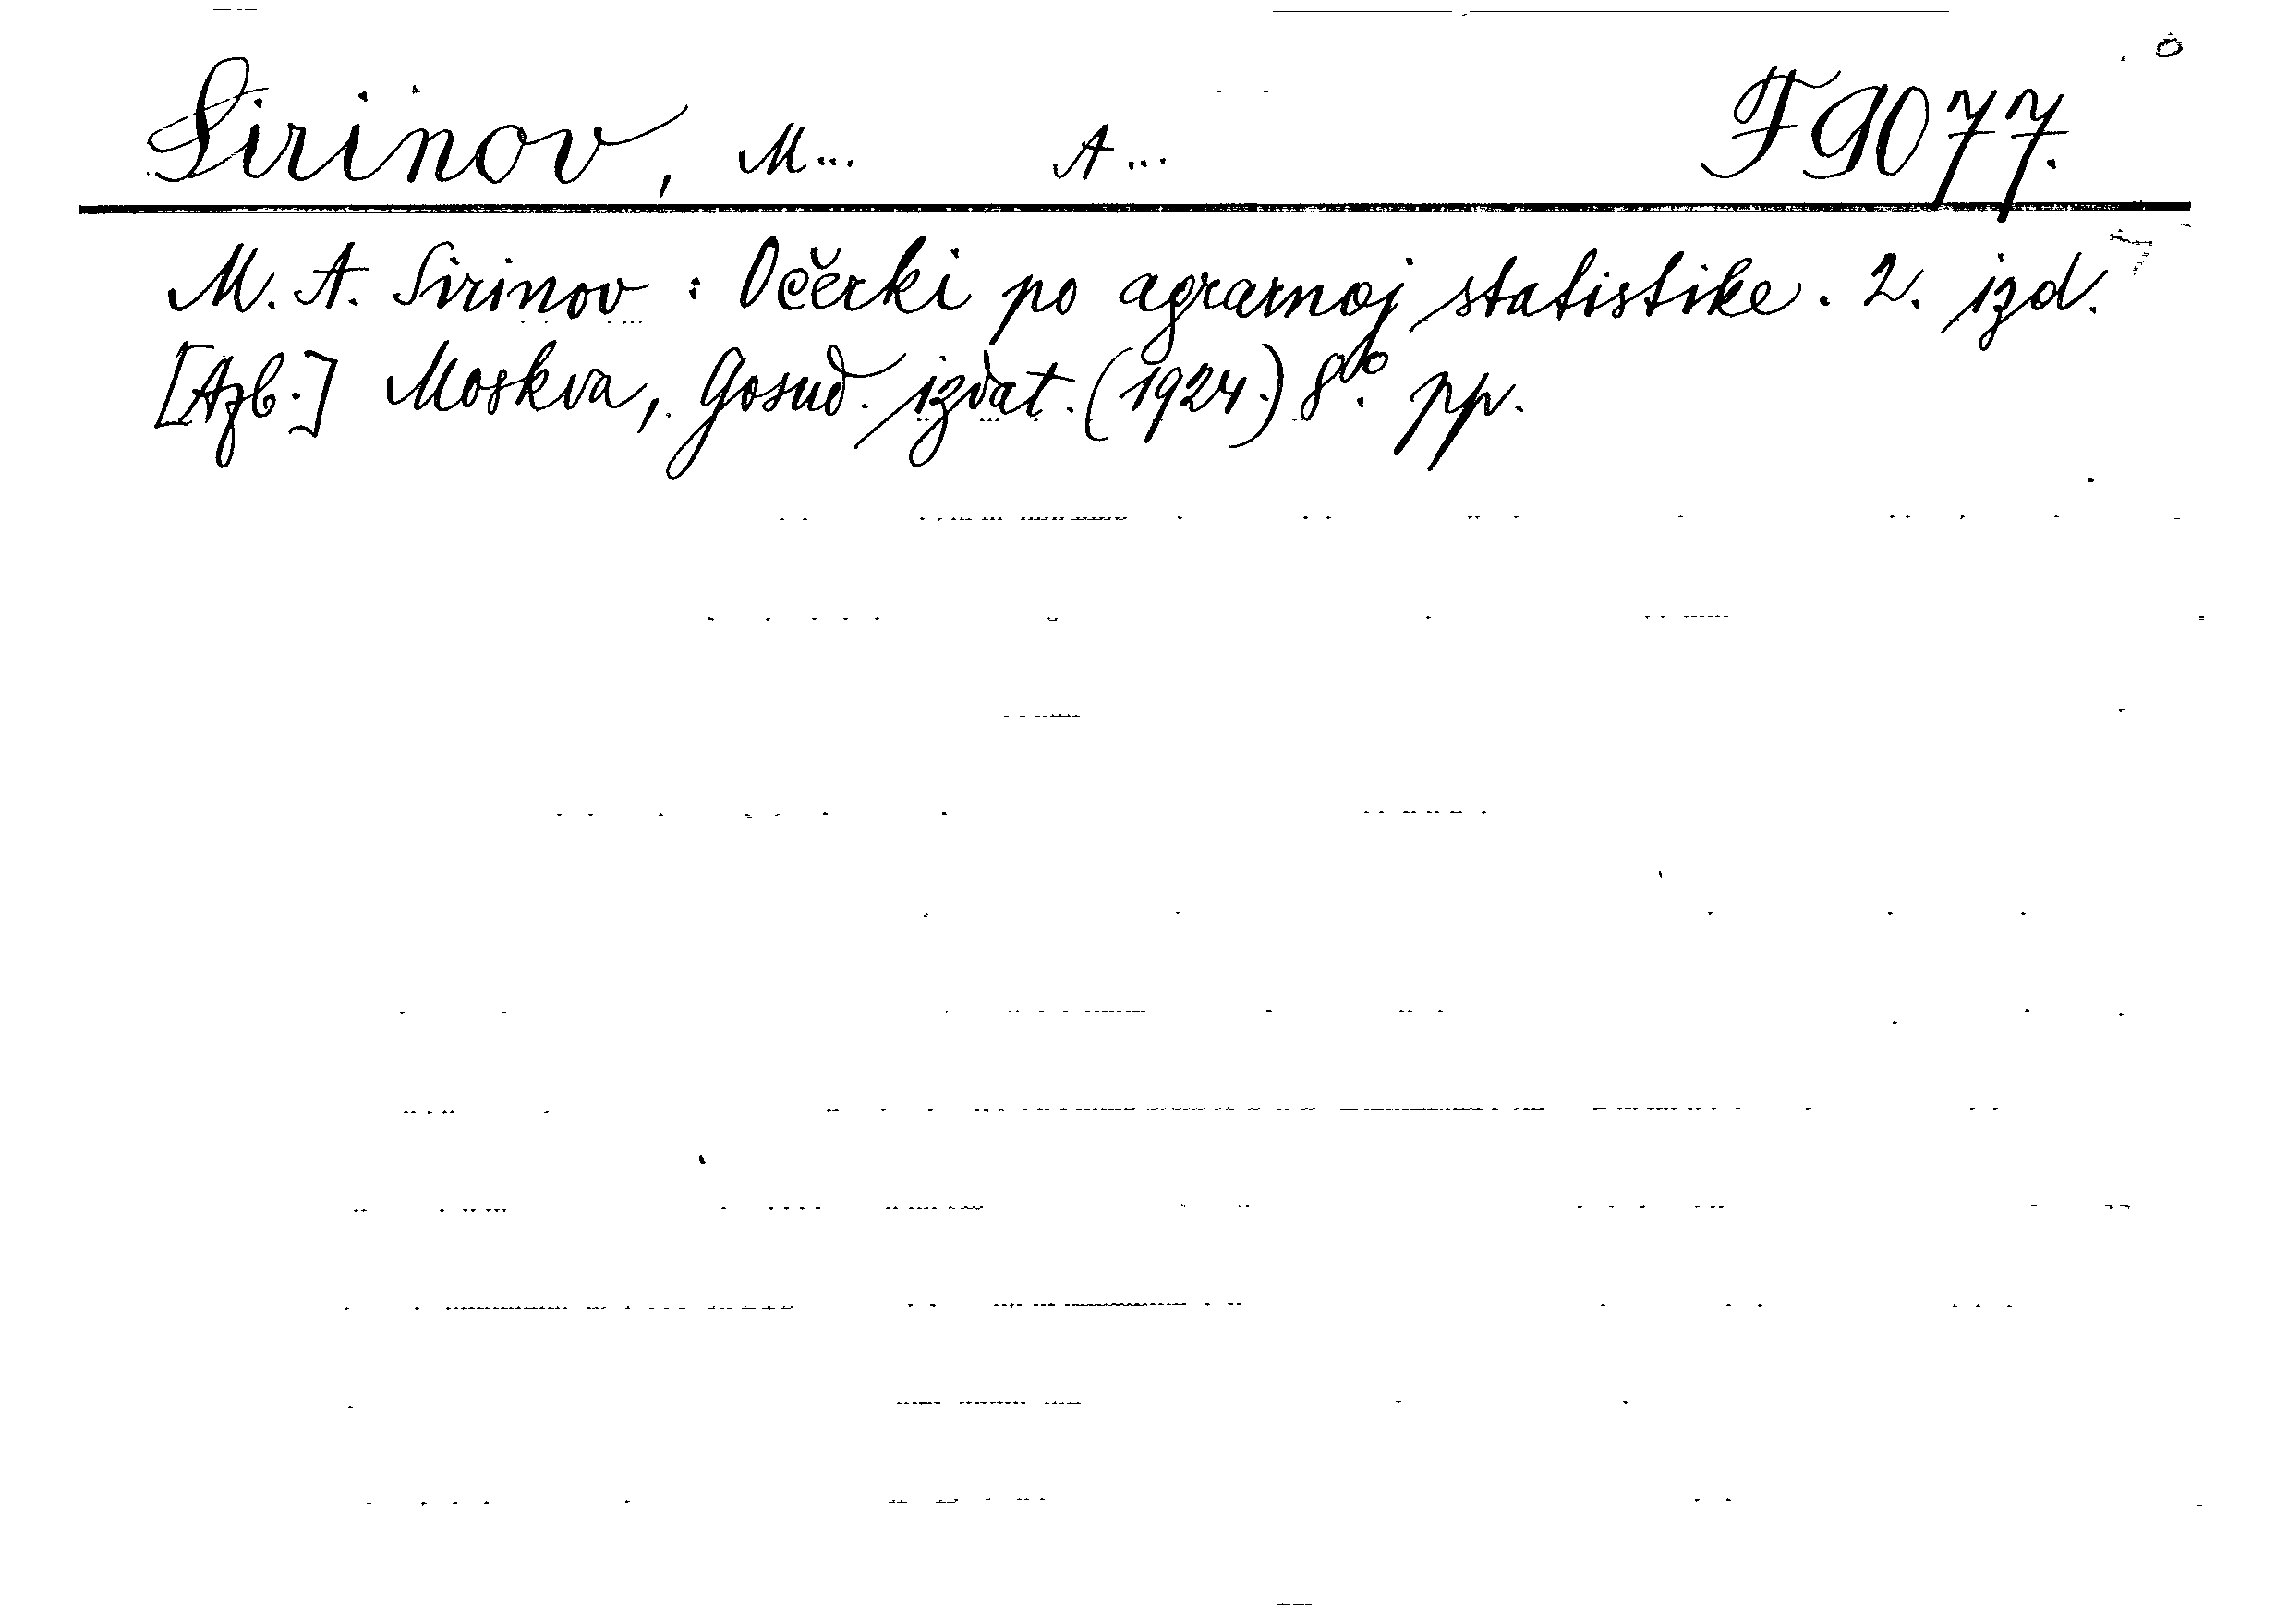 Sirinov, M... A... F9077.
M. A. Sirinov : Očerki po agrarnoj statistike. 2. izd.
[Azb.] Moskva, Gosud. izdat. (1924.) 8vo. pp.